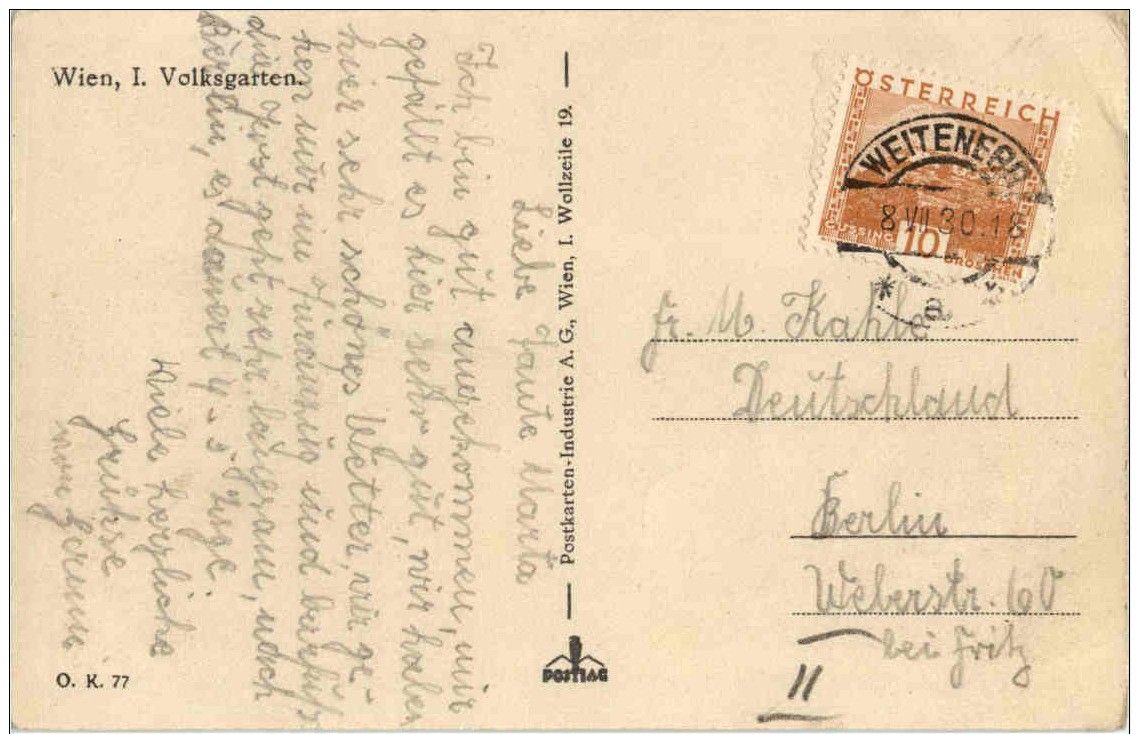 Wien, I. Volksgarten.
Liebe Tante Marta
Ich bin gut angekommen, mir
gefällt es hier sehr gut, wir haben
hier sehr schönes Wetter, wir ge-
hen nur im und barfuß
die Post geht sehr langsam, nach
Berlin, es dauert 4-5 Tage
Viele herzliche
Grüksse
von
O. K. 77
Postkarten-Industrie A. G., Wien, I. Wollzeile 19.
POSTIAG
ÖSTERREICH
GÜSSING
10
GROSCHEN
8.VII.30.18
* a *
Fr. M. Kahle
Deutschland
Berlin
Weberstr. 60
bei Fritz
II